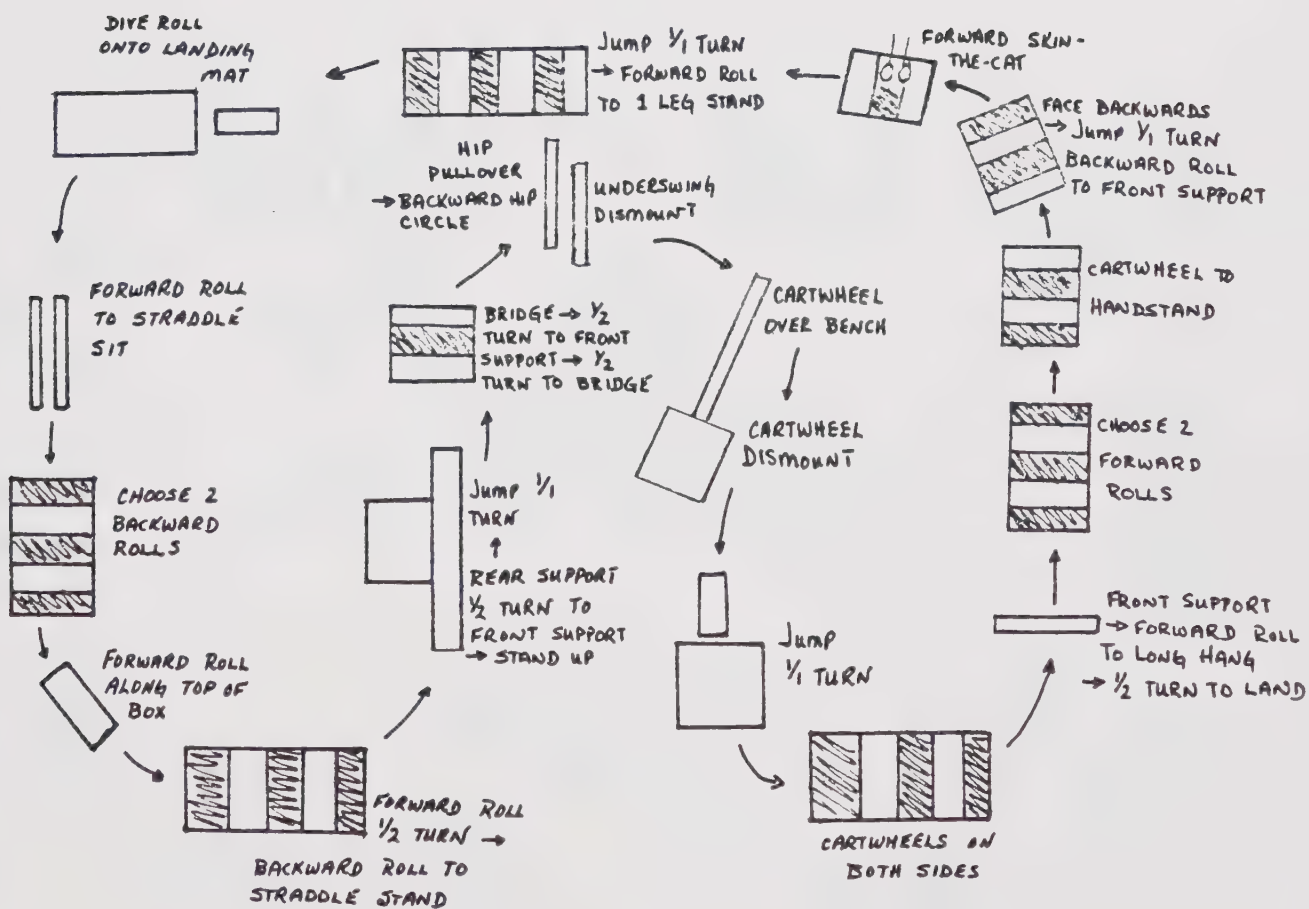 DIVE ROLL
ONTO LANDING
MAT
Jump 1/1 TURN
→ FORWARD ROLL
TO 1 LEG STAND
FORWARD SKIN-
THE-CAT
FACE BACKWARDS
→ Jump 1/1 TURN
BACKWARD ROLL
TO FRONT SUPPORT
HIP
PULLOVER
→ BACKWARD HIP
CIRCLE
UNDERSWING
DISMOUNT
FORWARD ROLL
TO STRADDLE
SIT
BRIDGE → 1/2
TURN TO FRONT
SUPPORT → 1/2
TURN TO BRIDGE
CARTWHEEL
OVER BENCH
CARTWHEEL
DISMOUNT
CARTWHEEL TO
HANDSTAND
CHOOSE 2
FORWARD
ROLLS
CHOOSE 2
BACKWARD
ROLLS
Jump 1/1
TURN
REAR SUPPORT
1/2 TURN TO
FRONT SUPPORT
→ STAND UP
FORWARD ROLL
ALONG TOP OF
BOX
Jump
1/1 TURN
FRONT SUPPORT
→ FORWARD ROLL
TO LONG HANG
→ 1/2 TURN TO LAND
FORWARD ROLL
1/2 TURN →
BACKWARD ROLL TO
STRADDLE STAND
CARTWHEELS ON
BOTH SIDES